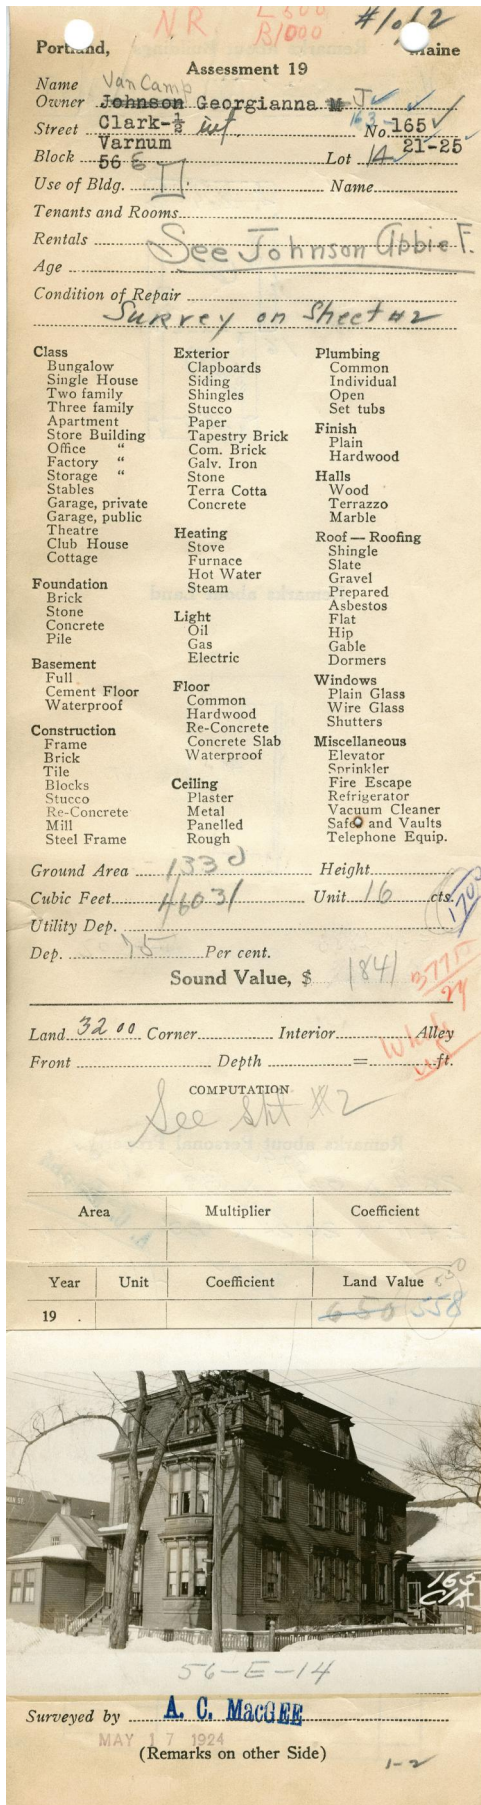 NR L 500 #1 of 2
B1000
Portland, Maine
Assessment 19
Name Van Camp
Owner Johnson Georgianna M J
Street Clark-½ int. 163- No. 165
Varnum 21-25
Block 56 E Lot 14
Use of Bldg. Name
Tenants and Rooms
Rentals See Johnson Abbie F.
Age
Condition of Repair
Survey on Sheet #2
Class
Bungalow
Single House
Two family
Three family
Apartment
Store Building
Office "
Factory "
Storage "
Stables
Garage, private
Garage, public
Theatre
Club House
Cottage
Foundation
Brick
Stone
Concrete
Pile
Basement
Full
Cement Floor
Waterproof
Construction
Frame
Brick
Tile
Blocks
Stucco
Re-Concrete
Mill
Steel Frame
Exterior
Clapboards
Siding
Shingles
Stucco
Paper
Tapestry Brick
Com. Brick
Galv. Iron
Stone
Terra Cotta
Concrete
Heating
Stove
Furnace
Hot Water
Steam
Light
Oil
Gas
Electric
Floor
Common
Hardwood
Re-Concrete
Concrete Slab
Waterproof
Ceiling
Plaster
Metal
Panelled
Rough
Plumbing
Common
Individual
Open
Set tubs
Finish
Plain
Hardwood
Halls
Wood
Terrazzo
Marble
Roof — Roofing
Shingle
Slate
Gravel
Prepared
Asbestos
Flat
Hip
Gable
Dormers
Windows
Plain Glass
Wire Glass
Shutters
Miscellaneous
Elevator
Sprinkler
Fire Escape
Refrigerator
Vacuum Cleaner
Safes and Vaults
Telephone Equip.
Ground Area 1330 Height
Cubic Feet 46031 Unit 16 cts.
1700
Utility Dep.
Dep. 75 Per cent.
Sound Value, $ 1841
Land 32 00 Corner Interior Alley
Front Depth = ft.
COMPUTATION
See Sht #2
Area Multiplier Coefficient
Year Unit Coefficient Land Value
19 . 650 558
165
Clark
56-E-14
Surveyed by A. C. MacGEE
MAY 17 1924
(Remarks on other Side)
1-2